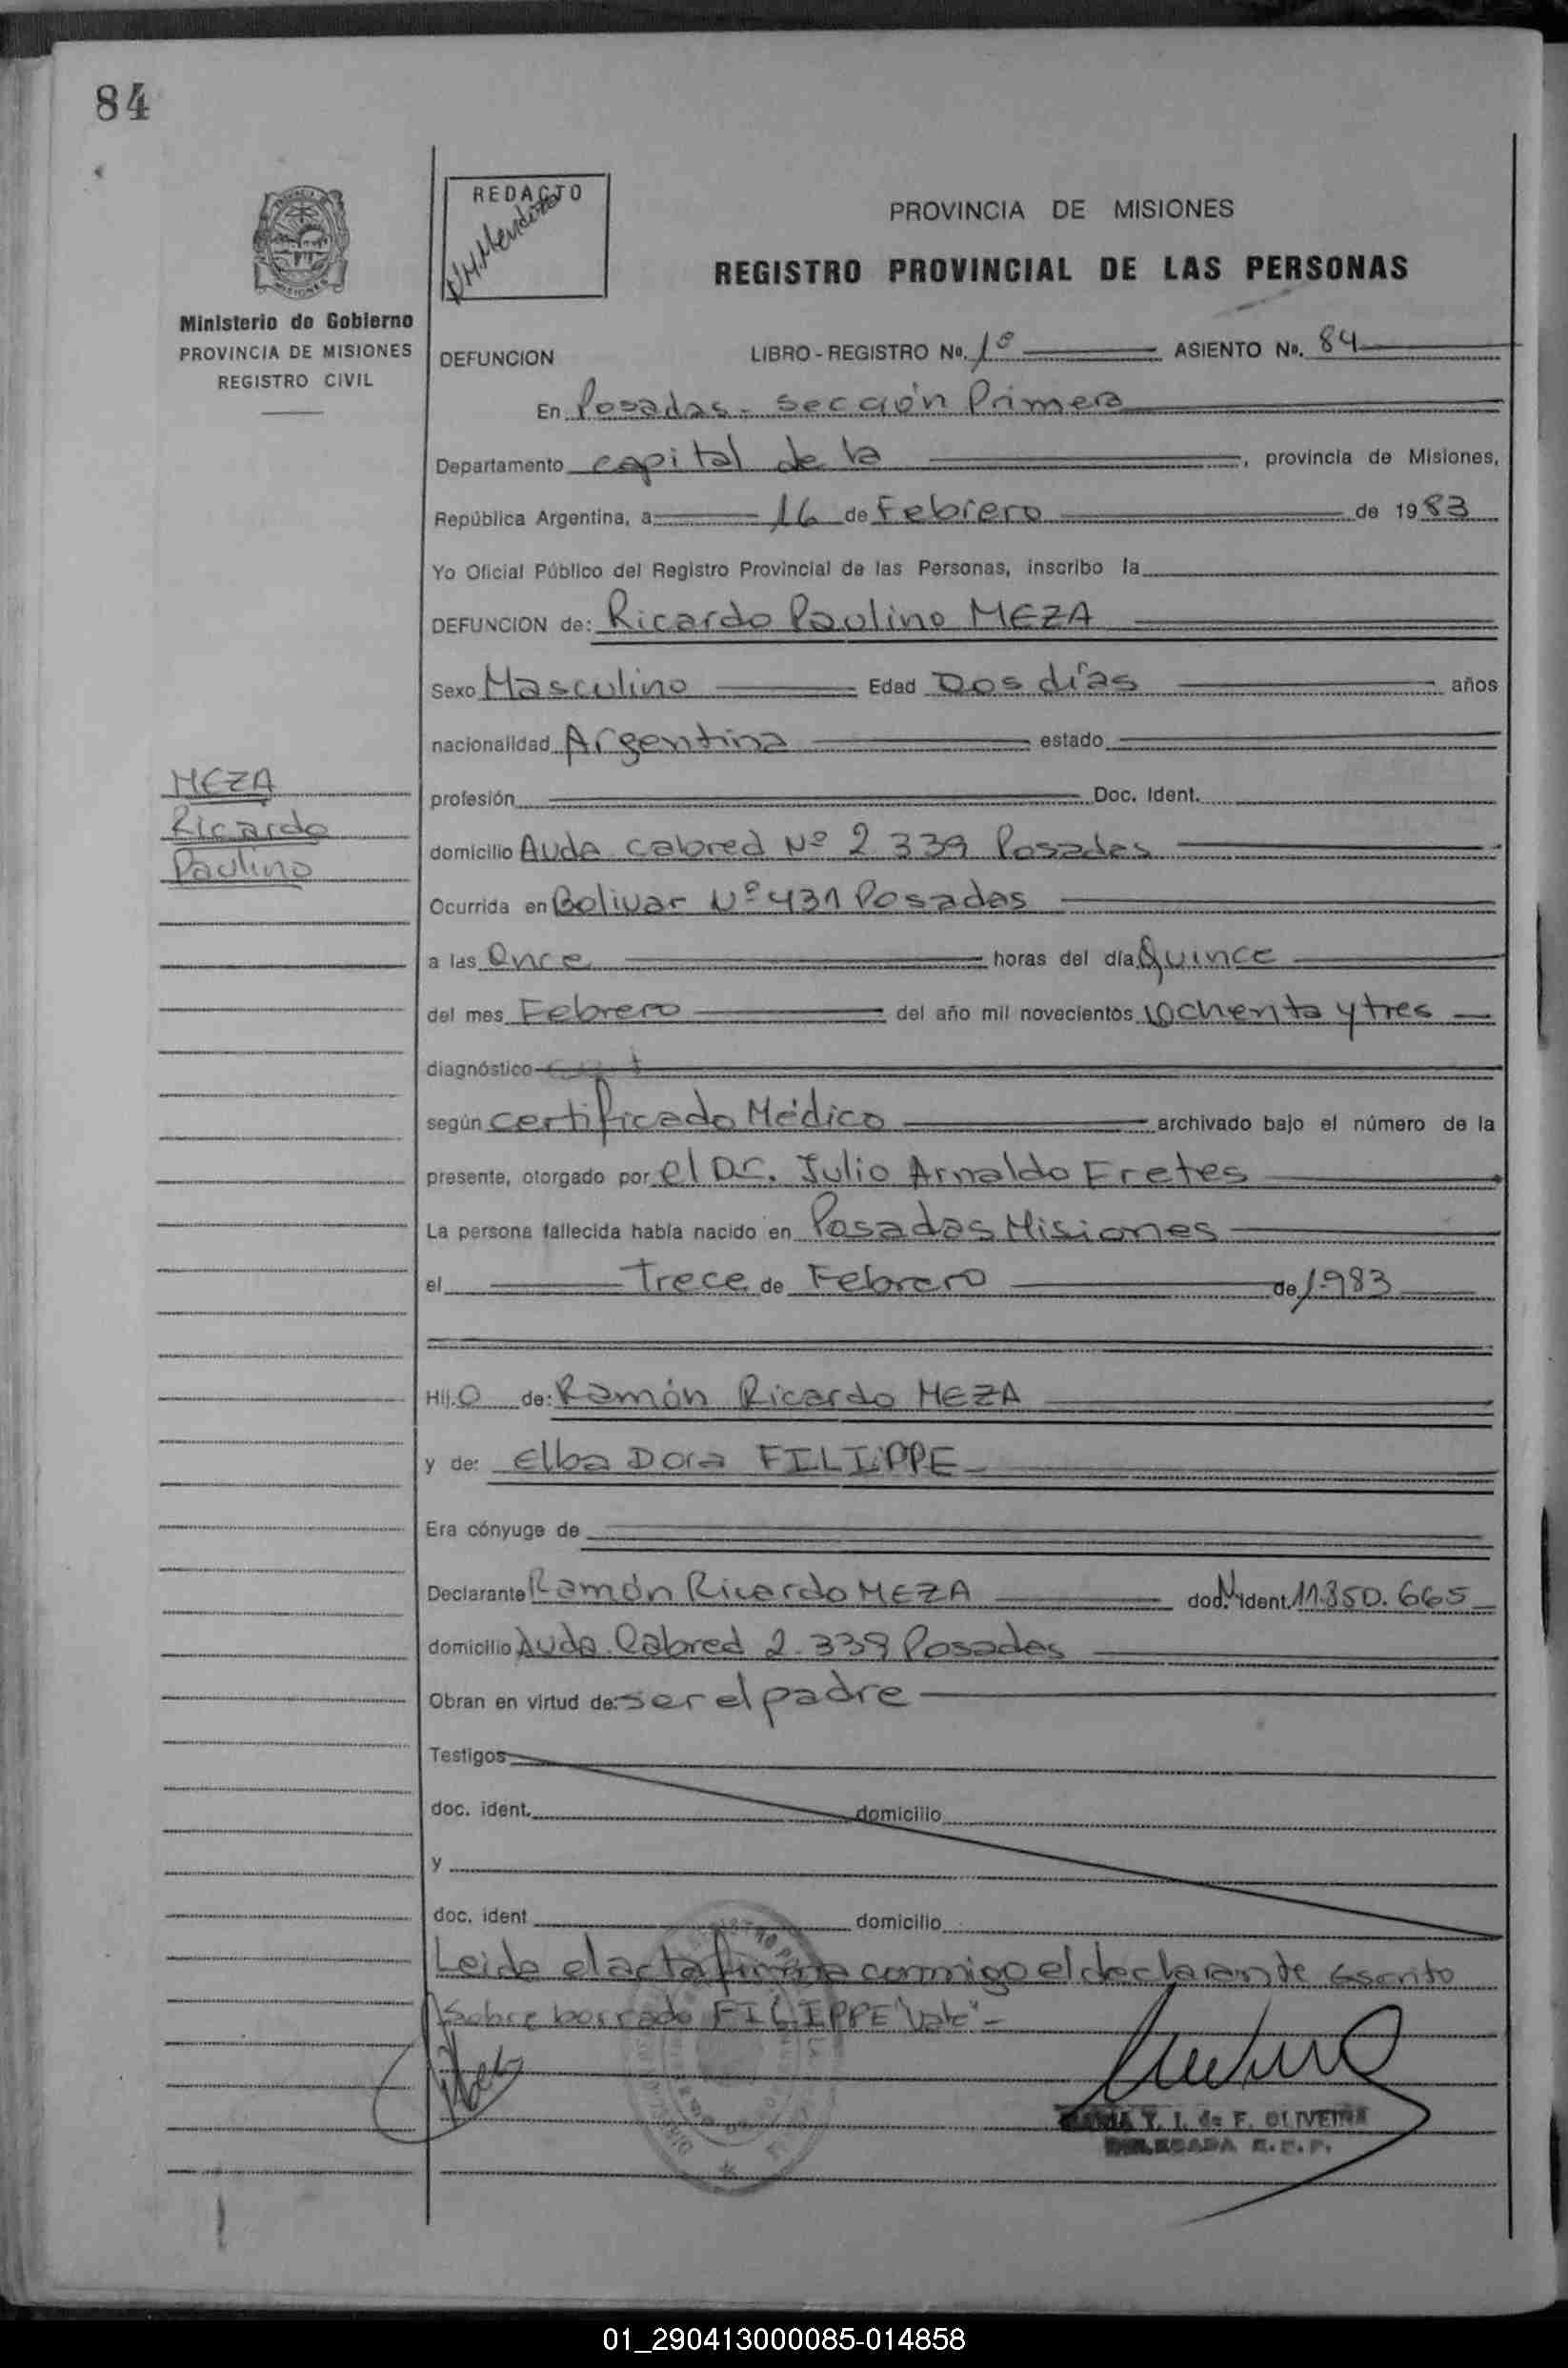 84
REDACTO
PROVINCIA DE MISIONES
REGISTRO PROVINCIAL DE LAS PERSONAS
Ministerio de Gobierno
PROVINCIA DE MISIONES
REGISTRO CIVIL
DEFUNCION LIBRO - REGISTRO No. 1º ASIENTO No. 84
En Posadas - Sección Primera
Departamento capital de la, provincia de Misiones,
República Argentina, a 16 de Febrero de 1983
Yo Oficial Público del Registro Provincial de las Personas, inscribo la
DEFUNCION de: Ricardo Paulino MEZA
Sexo Masculino Edad Dos días años
nacionalidad Argentina estado
MEZA
Ricardo
Paulino
profesión Doc. Ident.
domicilio Avda Cabred Nº 2339 Posadas
Ocurrida en Bolivar Nº 431 Posadas
a las Once horas del día Quince
del mes Febrero del año mil novecientos ochenta y tres
diagnóstico
según certificado Médico archivado bajo el número de la
presente, otorgado por el Dr. Julio Arnaldo Fretes
La persona fallecida había nacido en Posadas Misiones
el Trece de Febrero de 1983
Hijo de: Ramón Ricardo MEZA
y de: Elba Dora FILIPPE
Era cónyuge de
Declarante Ramón Ricardo MEZA doc. ident. 11.850.665
domicilio Avda. Cabred 2.339 Posadas
Obran en virtud de: ser el padre
Testigos
doc. ident. domicilio
y
doc. ident domicilio
Leida el acta firma conmigo el declarante Escrito
Sobre borrado FILIPPE "Vale" -
MARIA T. I. de F. OLIVEIRA
DELEGADA R.P.P.
01_290413000085-014858